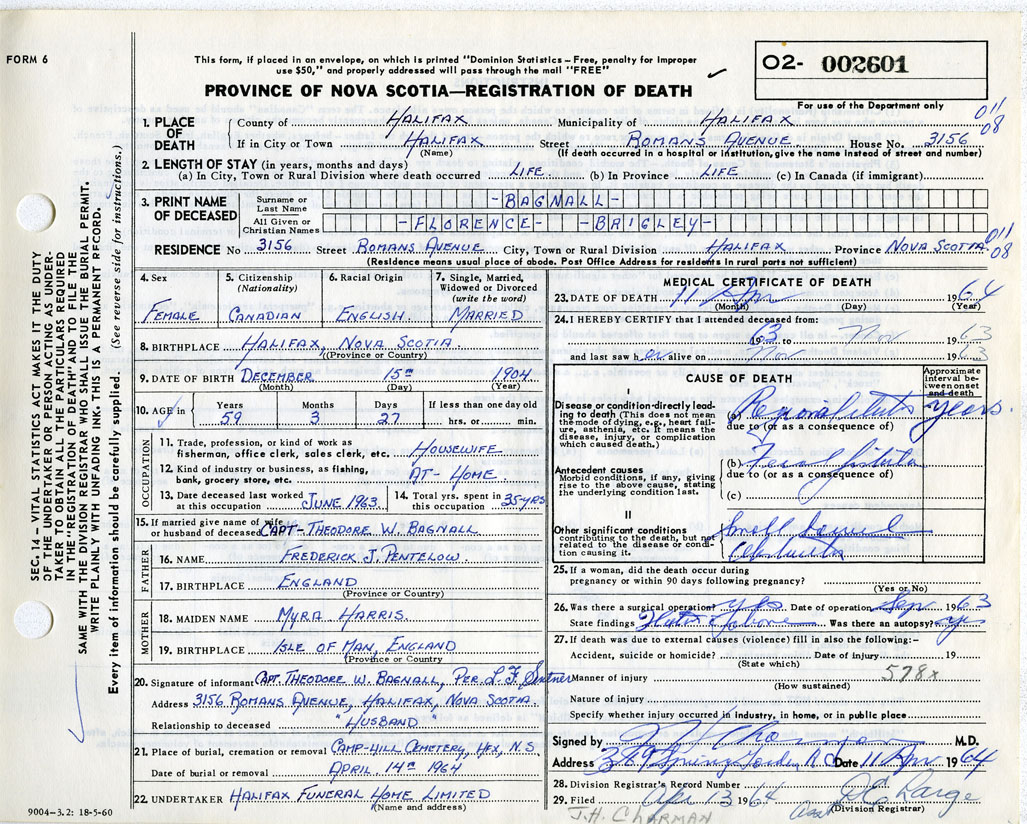 FORM 6
This form, if placed in an envelope, on which is printed "Dominion Statistics – Free, penalty for improper
use $50," and properly addressed will pass through the mail "FREE"
02- 002601
For use of the Department only
PROVINCE OF NOVA SCOTIA—REGISTRATION OF DEATH
011
08
1. PLACE OF DEATH
County of HALIFAX Municipality of HALIFAX
If in City or Town HALIFAX Street ROMANS AVENUE House No. 3156
(Name) (If death occurred in a hospital or institution, give the name instead of street and number)
2. LENGTH OF STAY (in years, months and days)
(a) In City, Town or Rural Division where death occurred LIFE (b) In Province LIFE (c) In Canada (if immigrant)
3. PRINT NAME OF DECEASED
Surname or Last Name -BAGNALL-
All Given or Christian Names -FLORENCE- -BRIGLEY-
011
08
RESIDENCE No 3156 Street ROMANS AVENUE City, Town or Rural Division HALIFAX Province NOVA SCOTIA
(Residence means usual place of abode. Post Office Address for residents in rural parts not sufficient)
4. Sex
FEMALE
5. Citizenship (Nationality)
CANADIAN
6. Racial Origin
ENGLISH
7. Single, Married, Widowed or Divorced (write the word)
MARRIED
8. BIRTHPLACE HALIFAX, NOVA SCOTIA
(Province or Country)
9. DATE OF BIRTH DECEMBER 15th 1904
(Month) (Day) (Year)
10. AGE in Years Months Days If less than one day old
59 3 27 hrs. or min.
OCCUPATION
11. Trade, profession, or kind of work as
fisherman, office clerk, sales clerk, etc. HOUSEWIFE
12. Kind of industry or business, as fishing,
bank, grocery store, etc. AT-HOME.
13. Date deceased last worked at this occupation JUNE 1963
14. Total yrs. spent in this occupation 35 YRS
15. If married give name of wife
or husband of deceased CAPT-THEODORE W. BAGNALL
FATHER
16. NAME FREDERICK J. PENTELOW
17. BIRTHPLACE ENGLAND
(Province or Country)
MOTHER
18. MAIDEN NAME MYRA HARRIS.
19. BIRTHPLACE ISLE OF MAN, ENGLAND
(Province or Country
20. Signature of informant CAPT. THEODORE W. BAGNALL, PER L.F.
Address 3156 ROMANS AVENUE, HALIFAX, NOVA SCOTIA.
Relationship to deceased "HUSBAND"
21. Place of burial, cremation or removal CAMP-HILL CEMETERY, HFX, N.S
Date of burial or removal APRIL. 14th 1964
22. UNDERTAKER HALIFAX FUNERAL HOME LIMITED
(Name and address)
9004–3.2: 18-5-60
MEDICAL CERTIFICATE OF DEATH
23. DATE OF DEATH 11 Apr 1964
(Month) (Day) (Year)
24. I HEREBY CERTIFY that I attended deceased from:
1963 to Nov 1963
and last saw her alive on Nov 1963
CAUSE OF DEATH
Approximate interval between onset and death
I
Disease or condition directly leading to death (This does not mean the mode of dying, e.g., heart failure, asthenia, etc. It means the disease, injury, or complication which caused death.)
(a) years.
due to (or as a consequence of)
Antecedent causes
Morbid conditions, if any, giving rise to the above cause, stating the underlying condition last.
(b) Fecal fistula
due to (or as a consequence of)
(c)
II
Other significant conditions
contributing to the death, but not related to the disease or condition causing it.
Small bowel
obstruction
25. If a woman, did the death occur during
pregnancy or within 90 days following pregnancy?
(Yes or No)
26. Was there a surgical operation? yes Date of operation 1963
State findings Was there an autopsy? yes
27. If death was due to external causes (violence) fill in also the following:–
Accident, suicide or homicide? Date of injury 19
(State which)
Manner of injury 578x
(How sustained)
Nature of injury
Specify whether injury occurred in industry, in home, or in public place
Signed by M.D.
Address 369 Spring Garden Rd Date 11 Apr 1964
28. Division Registrar's Record Number
29. Filed Apr 13 1964
J.H. CHAPMAN
(Division Registrar)
SEC. 14 – VITAL STATISTICS ACT MAKES IT THE DUTY
OF THE UNDERTAKER OR PERSON ACTING AS UNDER-
TAKER TO OBTAIN ALL THE PARTICULARS REQUIRED
IN THE "REGISTRATION OF DEATH" AND TO FILE THE
SAME WITH THE DIVISION REGISTRAR WHO SHALL ISSUE THE BURIAL PERMIT.
WRITE PLAINLY WITH UNFADING INK. THIS IS A PERMANENT RECORD.
Every item of information should be carefully supplied. (See reverse side for instructions.)